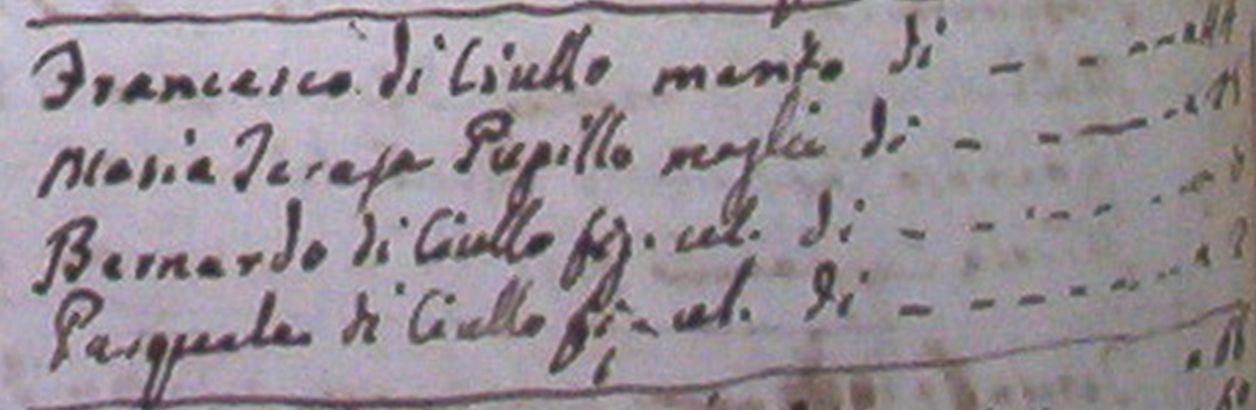 Francesco di Ciullo marito di
Maria Teresa Pupillo moglie di
Bernardo di Ciullo fig. cel. di
Pasquale di Ciullo fi- cel. di